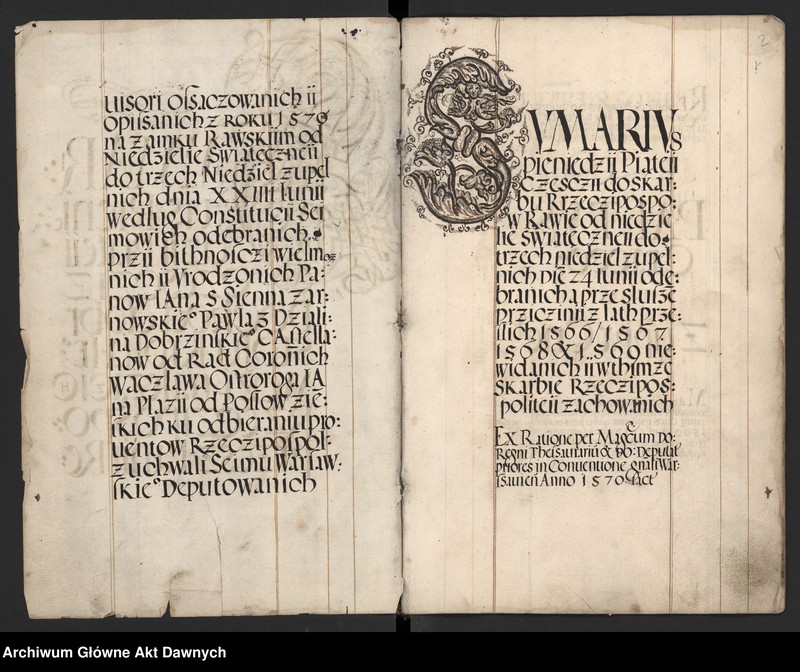 uisori ossaczowanich ii
opiisanich z ROKU 1570
na zamku Rawskiim od
Niedzielie Swiateczneii
do trzech Niedziel zupel
nich dnia XXIIII Iunii
według Constitucii Sei
mowich odebranich
przii bithnosczi wielmoz
nich ii Vrodzonich Pa:
now IAna S Sienna zar:
nowskieo Pawla z Dziali:
na Dobrzinskieo CAstella:
now od Rad Coronich
Waczlawa Ostroroga IA
na Plazii od Posłow zie:
skich ku odbieraniu pro:
uentow Rzeczipospol:
z uchwali Seimu Warsaw:
skieo Deputowanich
2
SVMARIVS
pieniedzii Piateii
Czesczii do skar:
bu Rrzeczipospo:
w Rawie od niedzie
lie Swiateczneii do
trzech niedziel zupel:
nich die 24 Iunii ode:
branich a prze sluisze
prziczinii z lath prze:
slich 1566/1567
1568 & 1569 nie:
widanich ii w thimze
skarbie Rzeczipos:
politeii zachowanich
Ex Ratione per Magcum Do:
Regni Thesaurariu & Do: Deputat
priores in Conventione gnali War:
saviensi Anno 1570 fact
Archiwum Główne Akt Dawnych